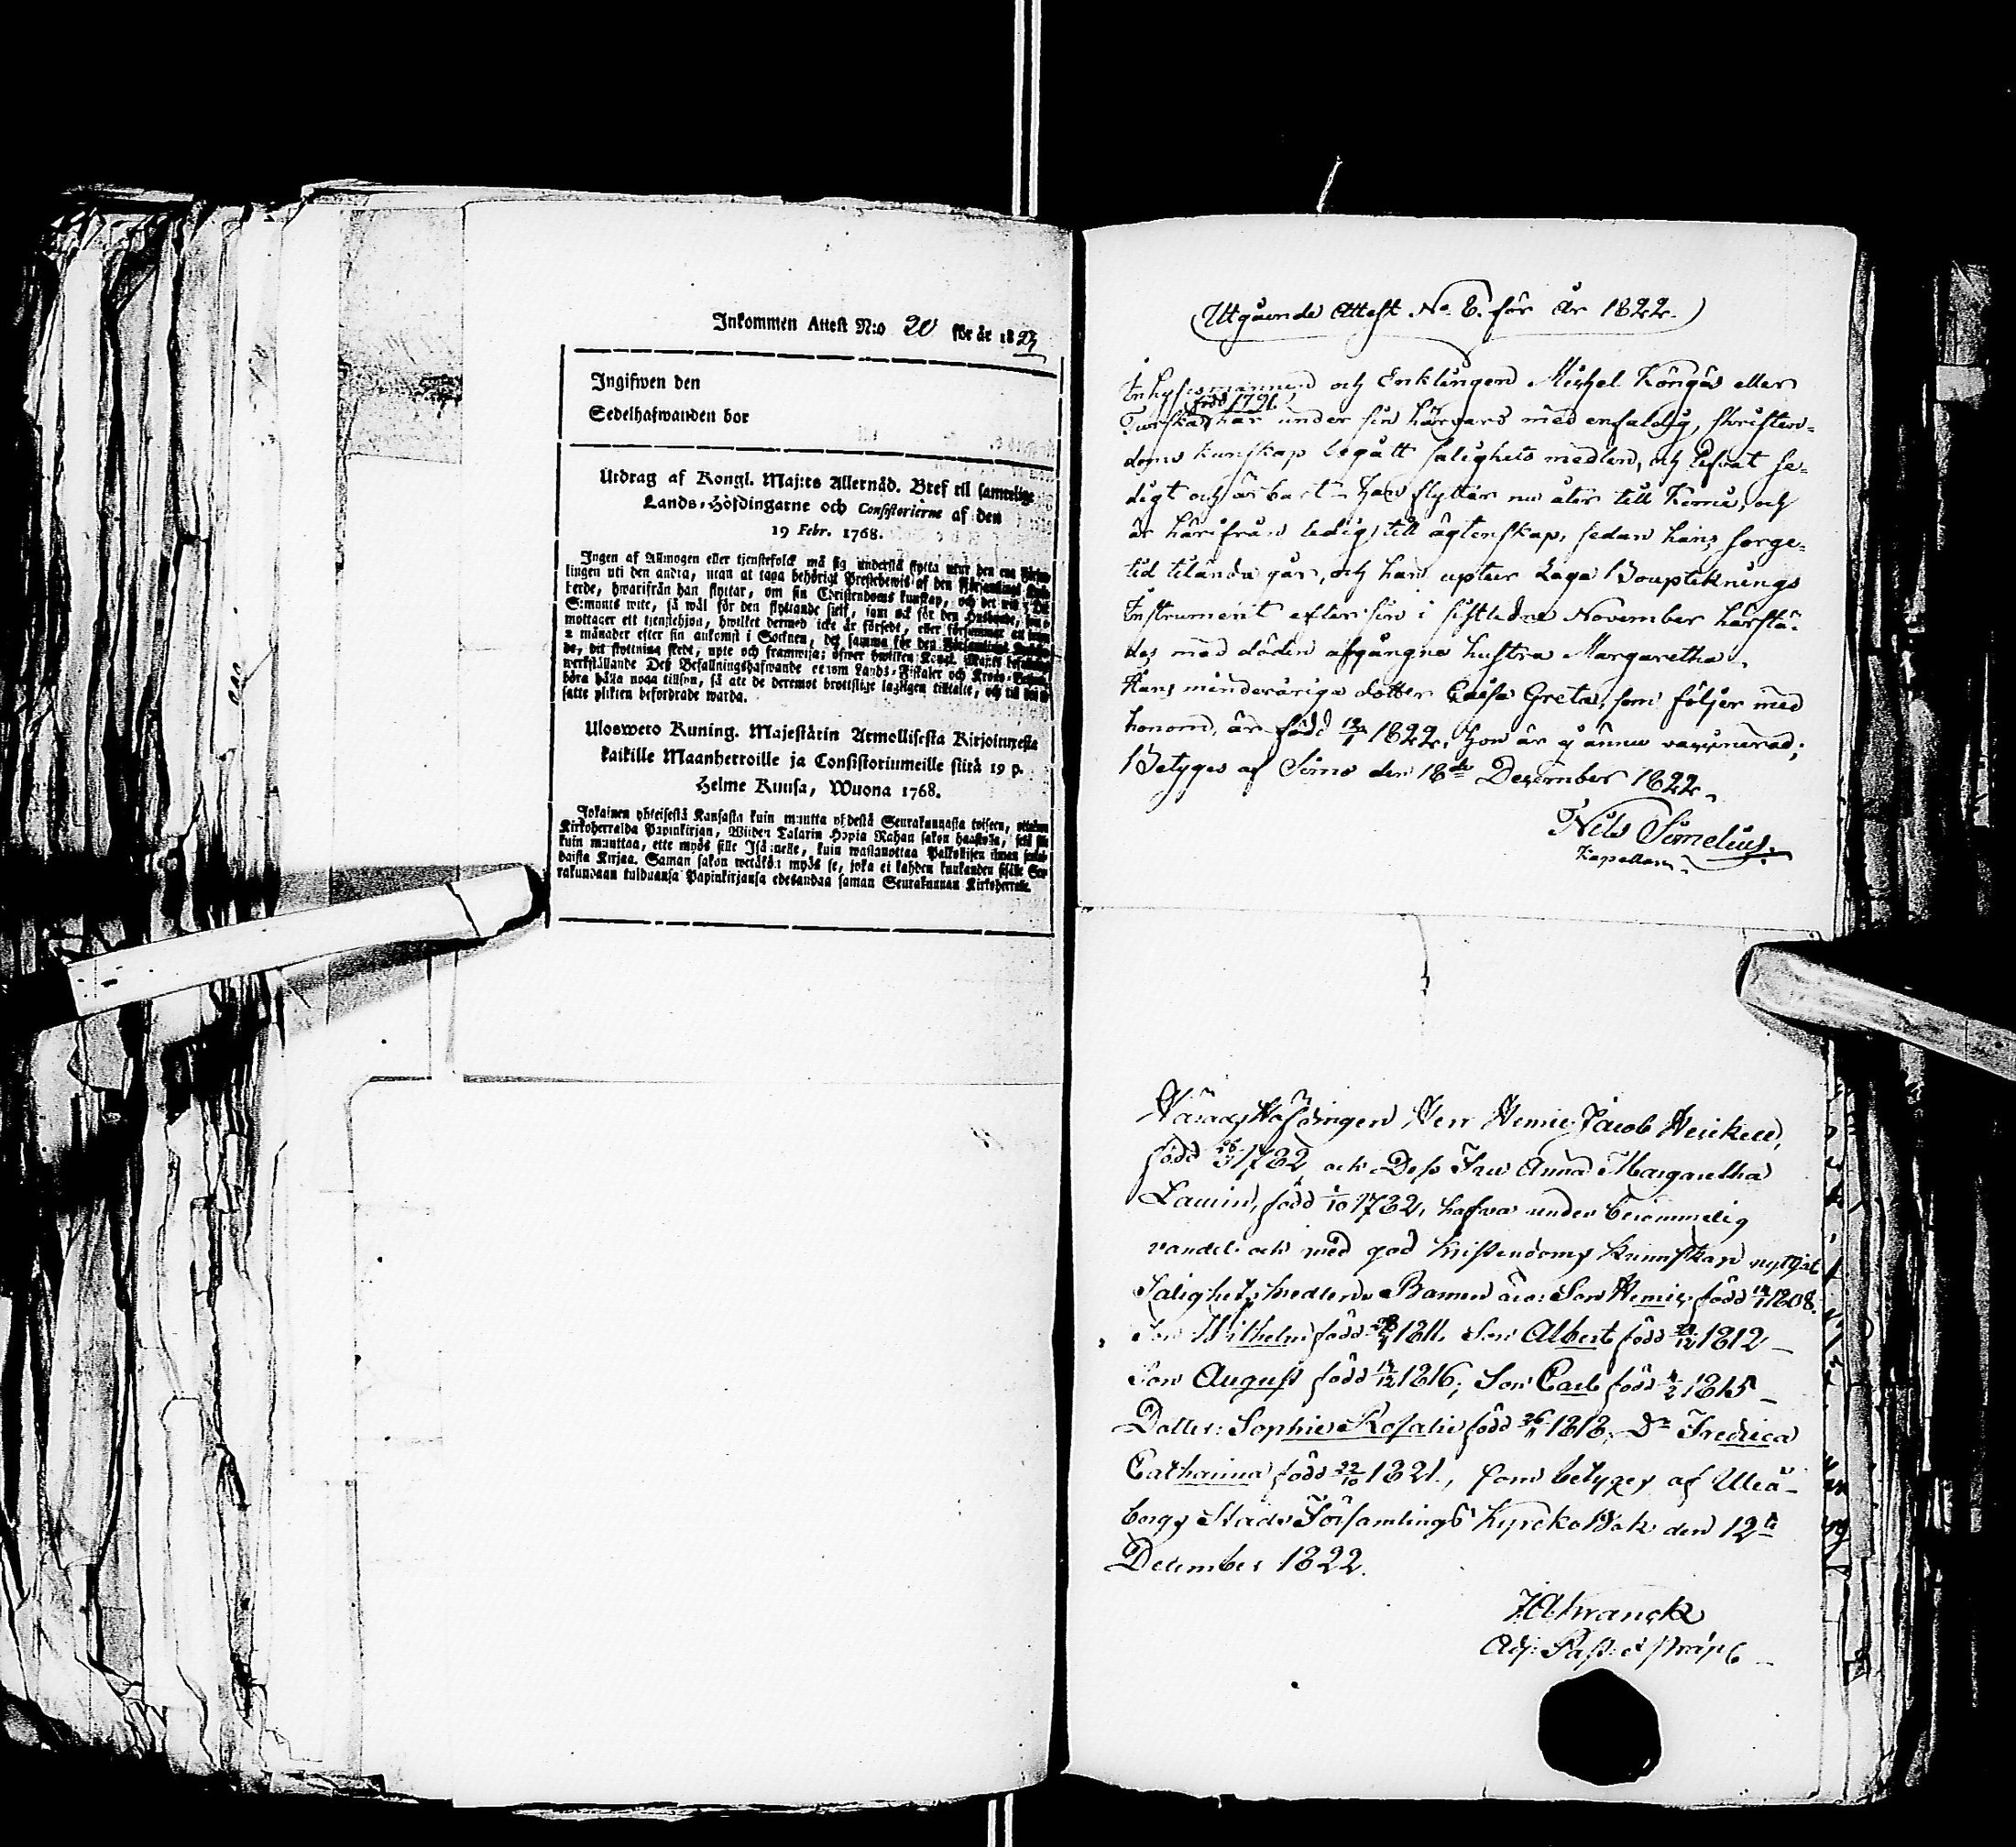 Inkommen Attest N:o 20 för år 1823
Ingifwen den
Sedelhafwanden bor
Utdrag af Kongl. Maj:ts Allernåd. Bref til samtelige
Lands-Höfdingarne och Consistorierne af den
19 Febr. 1768.
Ingen af Allmogen eller tjenstefolck må sig understå flytta utur den ena Försam-
lingen uti den andra, utan at taga behörigt Prestebewis af den Församlings
herde, hwarifrån han flyttar, om sin Christendoms kunskap, och det wid 3 Dal.
S:mynts wite, så wäl för den flyttande sielf, som ock för den Husbonde, som
mottager ett tjenstehjon, hwilket dermed icke är försedt, eller försummar at inom
2 månader efter sin ankomst i Socknen, det samma för den Församlings
de, dit flyttning skedt, upte och framwisa; öfwer hwilken Kongl. Maj:ts befallning
werkställande Deß Befallningshafwande genom Lands-Fiskaler och Krono-Betjente
böra hålla noga tillsyn, så att de deremot brottslige lagligen tilltalte, och til
satte plikten befordrade warda.
Ulosweto Kuning. Majestätin Armollisesta Kirjoituxesta
kaikille Maanherroille ja Consistoriumeille siitä 19 p.
Helme Kuusa, Wuona 1768.
Jokainen yhteisestä Kansasta kuin muutta yhdestä Seurakunnasta toiseen, ottakon
Kirkoherralda Papinkirjan, Wiiden Talarin Hopia Rahan sakon haastolla, sekä se
kuin muuttaa, ette myös sille Isännelle, kuin wastanottaa Palkollisen ilman sen-
daista Kirjaa. Saman sakon wetäkön myös se, joka ei kahden kuukauden sisälle Seu-
rakundaan tulduansa Papinkirjansa edesandaa saman Seurakunnan Kirkoherralle.
Utgående Attest No 6. för år 1822.
Inhysesmannen och Enklingen Michel Köngäs eller
född 1791
Turska har under sin härvaro med enfaldig, christen-
doms kunskap begått salighets medlen, och lefvat se-
digt och ärbart - Han flyttar nu åter till Kemi, och
är härifrån ledig till ägtenskap, sedan hans sorge-
tid tilända går, och han uptér Laga Bouptekninгs
Instrument efter sin i sistledne November härstä-
des med döden afgångne hustru Margaretha.
Hans minderåriga dotter Caisa Greta, som följer med
honom, är född 12/1 1822. Hon är ej ännu vaccinerad;
Betyges af Simo den 18de December 1822.
Nils Simelius.
Kapellan.
HäradsHöfdingen Herr Henric Jacob Heickell,
född 26/3 1782 och Dess Fru Anna Margaretha
född 1/10 1782, hafva under berömmelig
vandel och med god kristendoms kunnskap nyttjat
Salighets medlen. Barnen äro: Son Henric född 14/1 1808.
Son Wilhelm född 28/4 1811. Son Albert född 23/12 1812 -
Son August född 14/12 1816; Son Carl född 4/2 1815 -
Dotter: Sophie Rosalie född 26/11 1818; Dr Fredrica
Catharina född 22/10 1821., som betyges af Uleå-
borgs Stads Församlings KyrckoBok den 12te
December 1822.
Adj: Past: